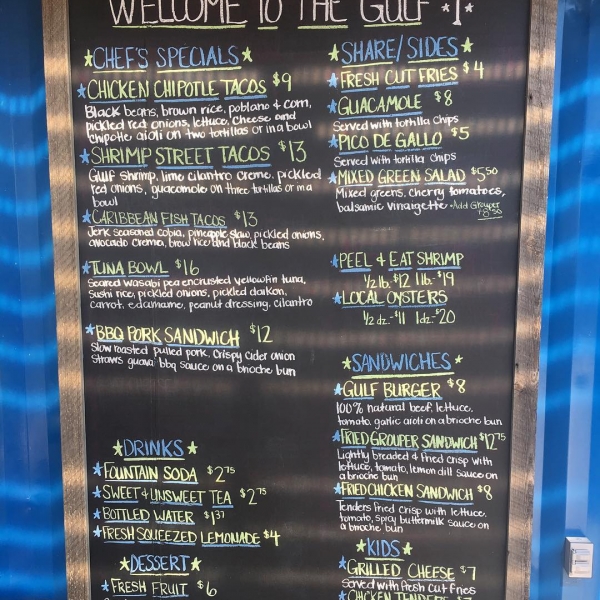 WELCOME TO THE GULF
CHEF'S SPECIALS
CHICKEN CHIPOTLE TACOS $9
Black beans, brown rice, poblano & corn,
pickled red onions, lettuce, cheese and
chipotle aioli on two tortillas or in a bowl
SHRIMP STREET TACOS $13
Gulf shrimp, lime cilantro creme, pickled
red onions, guacamole on three tortillas or in a
bowl
CARIBBEAN FISH TACOS $13
Jerk seasoned cobia, pineapple slaw, pickled onions,
avocado crema, brow rice and black beans
TUNA BOWL $16
Seared wasabi pea encrusted yellowfin tuna,
Sushi rice, pickled onions, pickled daikon,
carrot, edamame, peanut dressing, cilantro
BBQ PORK SANDWICH $12
Slow roasted pulled pork, crispy cider onion
straws guava bbq sauce on a brioche bun
DRINKS
FOUNTAIN SODA $2.75
SWEET & UNSWEET TEA $2.75
BOTTLED WATER $1.37
FRESH SQUEEZED LEMONADE $4
DESSERT
FRESH FRUIT $6
SHARE/SIDES
FRESH CUT FRIES $4
GUACAMOLE $8
Served with tortilla chips
PICO DE GALLO $5
Served with tortilla chips
MIXED GREEN SALAD $5.50
Mixed greens, cherry tomatoes,
balsamic vinaigette - Add Grouper
PEEL & EAT SHRIMP
1/2 lb. $12 1 lb. $19
LOCAL OYSTERS
1/2 dz - $11 1dz - $20
SANDWICHES
GULF BURGER $8
100% natural beef, lettuce,
tomato, garlic aioli on a brioche bun
FRIED GROUPER SANDWICH $12.75
Lightly breaded & fried crisp with
lettuce, tomato, lemon dill sauce on
a brioche bun
FRIED CHICKEN SANDWICH $8
Tenders fried crisp with lettuce,
tomato, spicy buttermilk sauce on
a brioche bun
KIDS
GRILLED CHEESE $7
Served with fresh cut fries
CHICKEN TENDERS $7